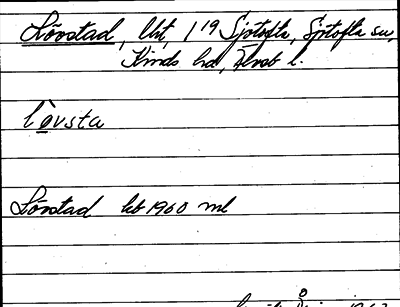 Lövstad, lht, 1/19 Sjötofta, Sjötofta sn,
Kinds hd, Älvsb l.
lòvsta
Lövstad kb 1960 ml